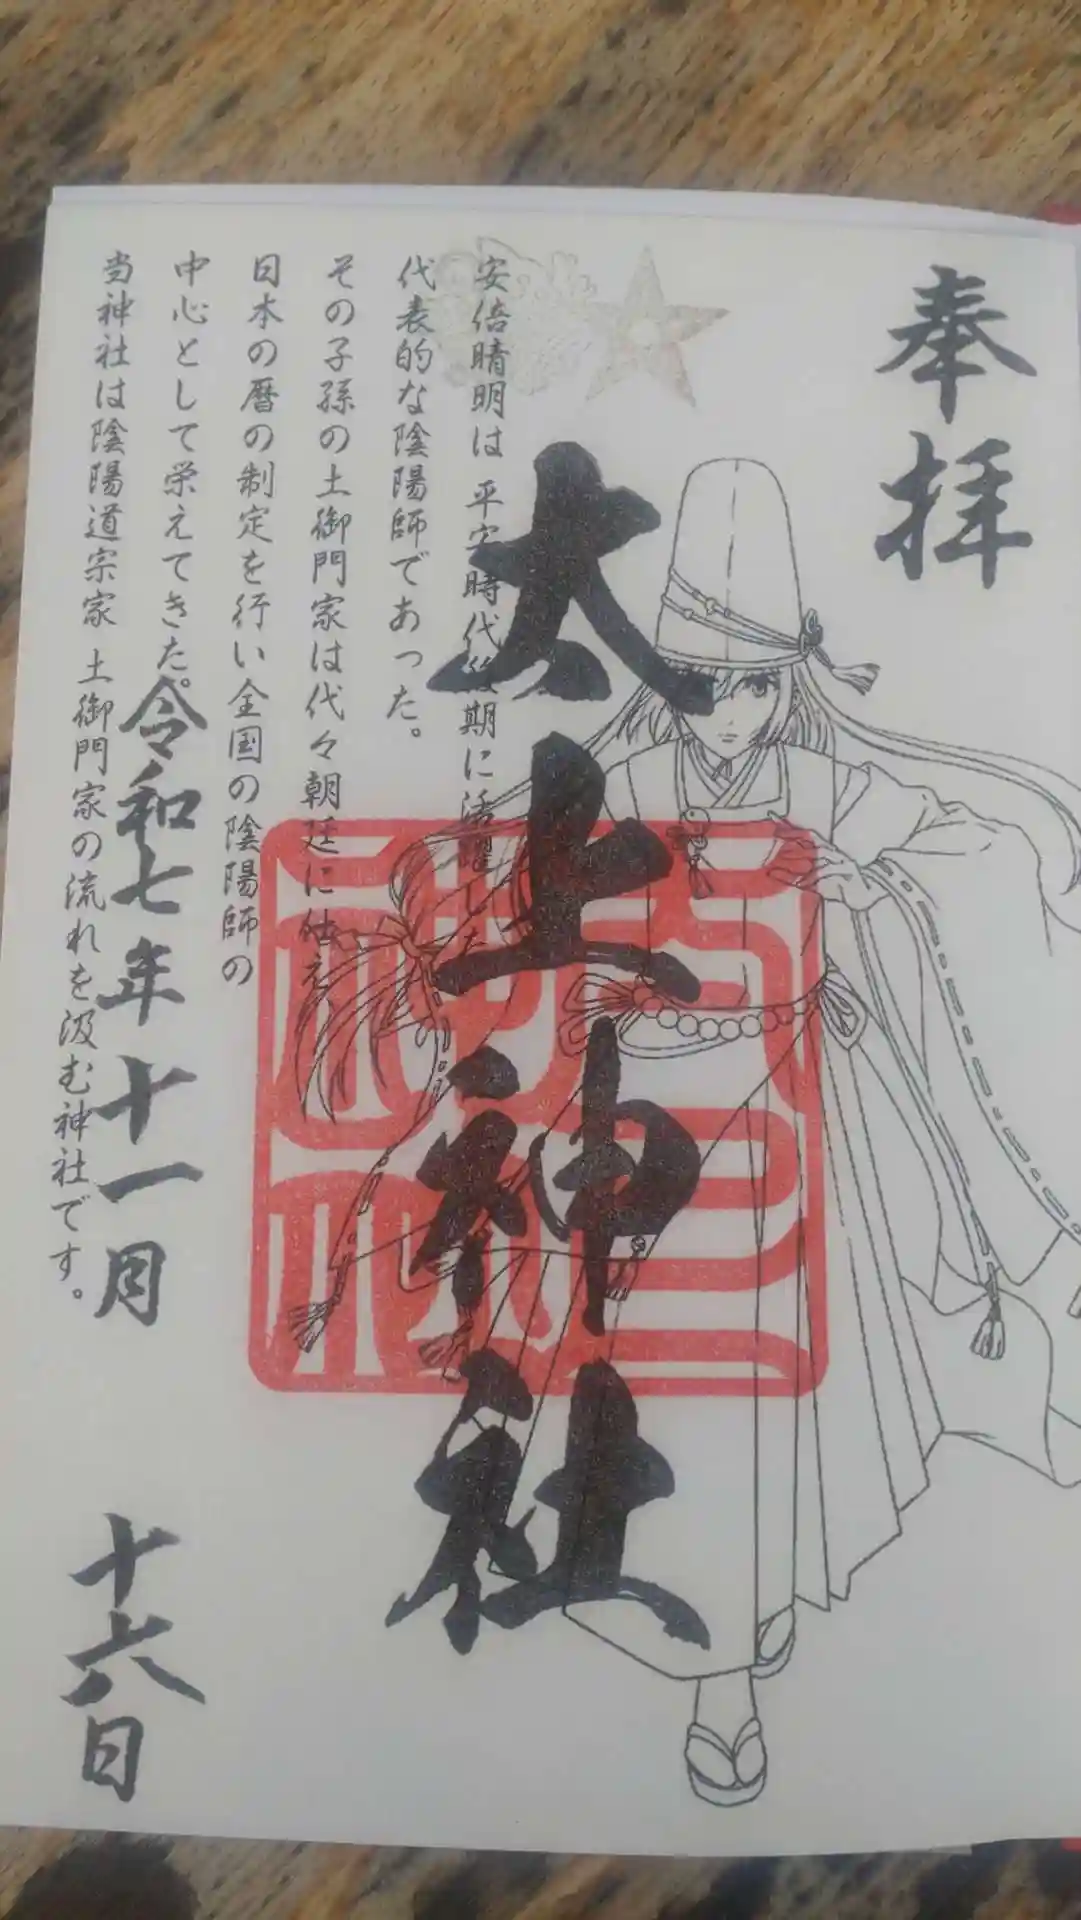 奉拝
太上神社
安倍晴明は 平安時代後期に活躍した
代表的な陰陽師であった。
その子孫の土御門家は代々朝廷に仕え
日本の暦の制定を行い全国の陰陽師の
中心として栄えてきた。
当神社は陰陽道宗家 土御門家の流れを汲む神社です。
令和七年十一月 十六日